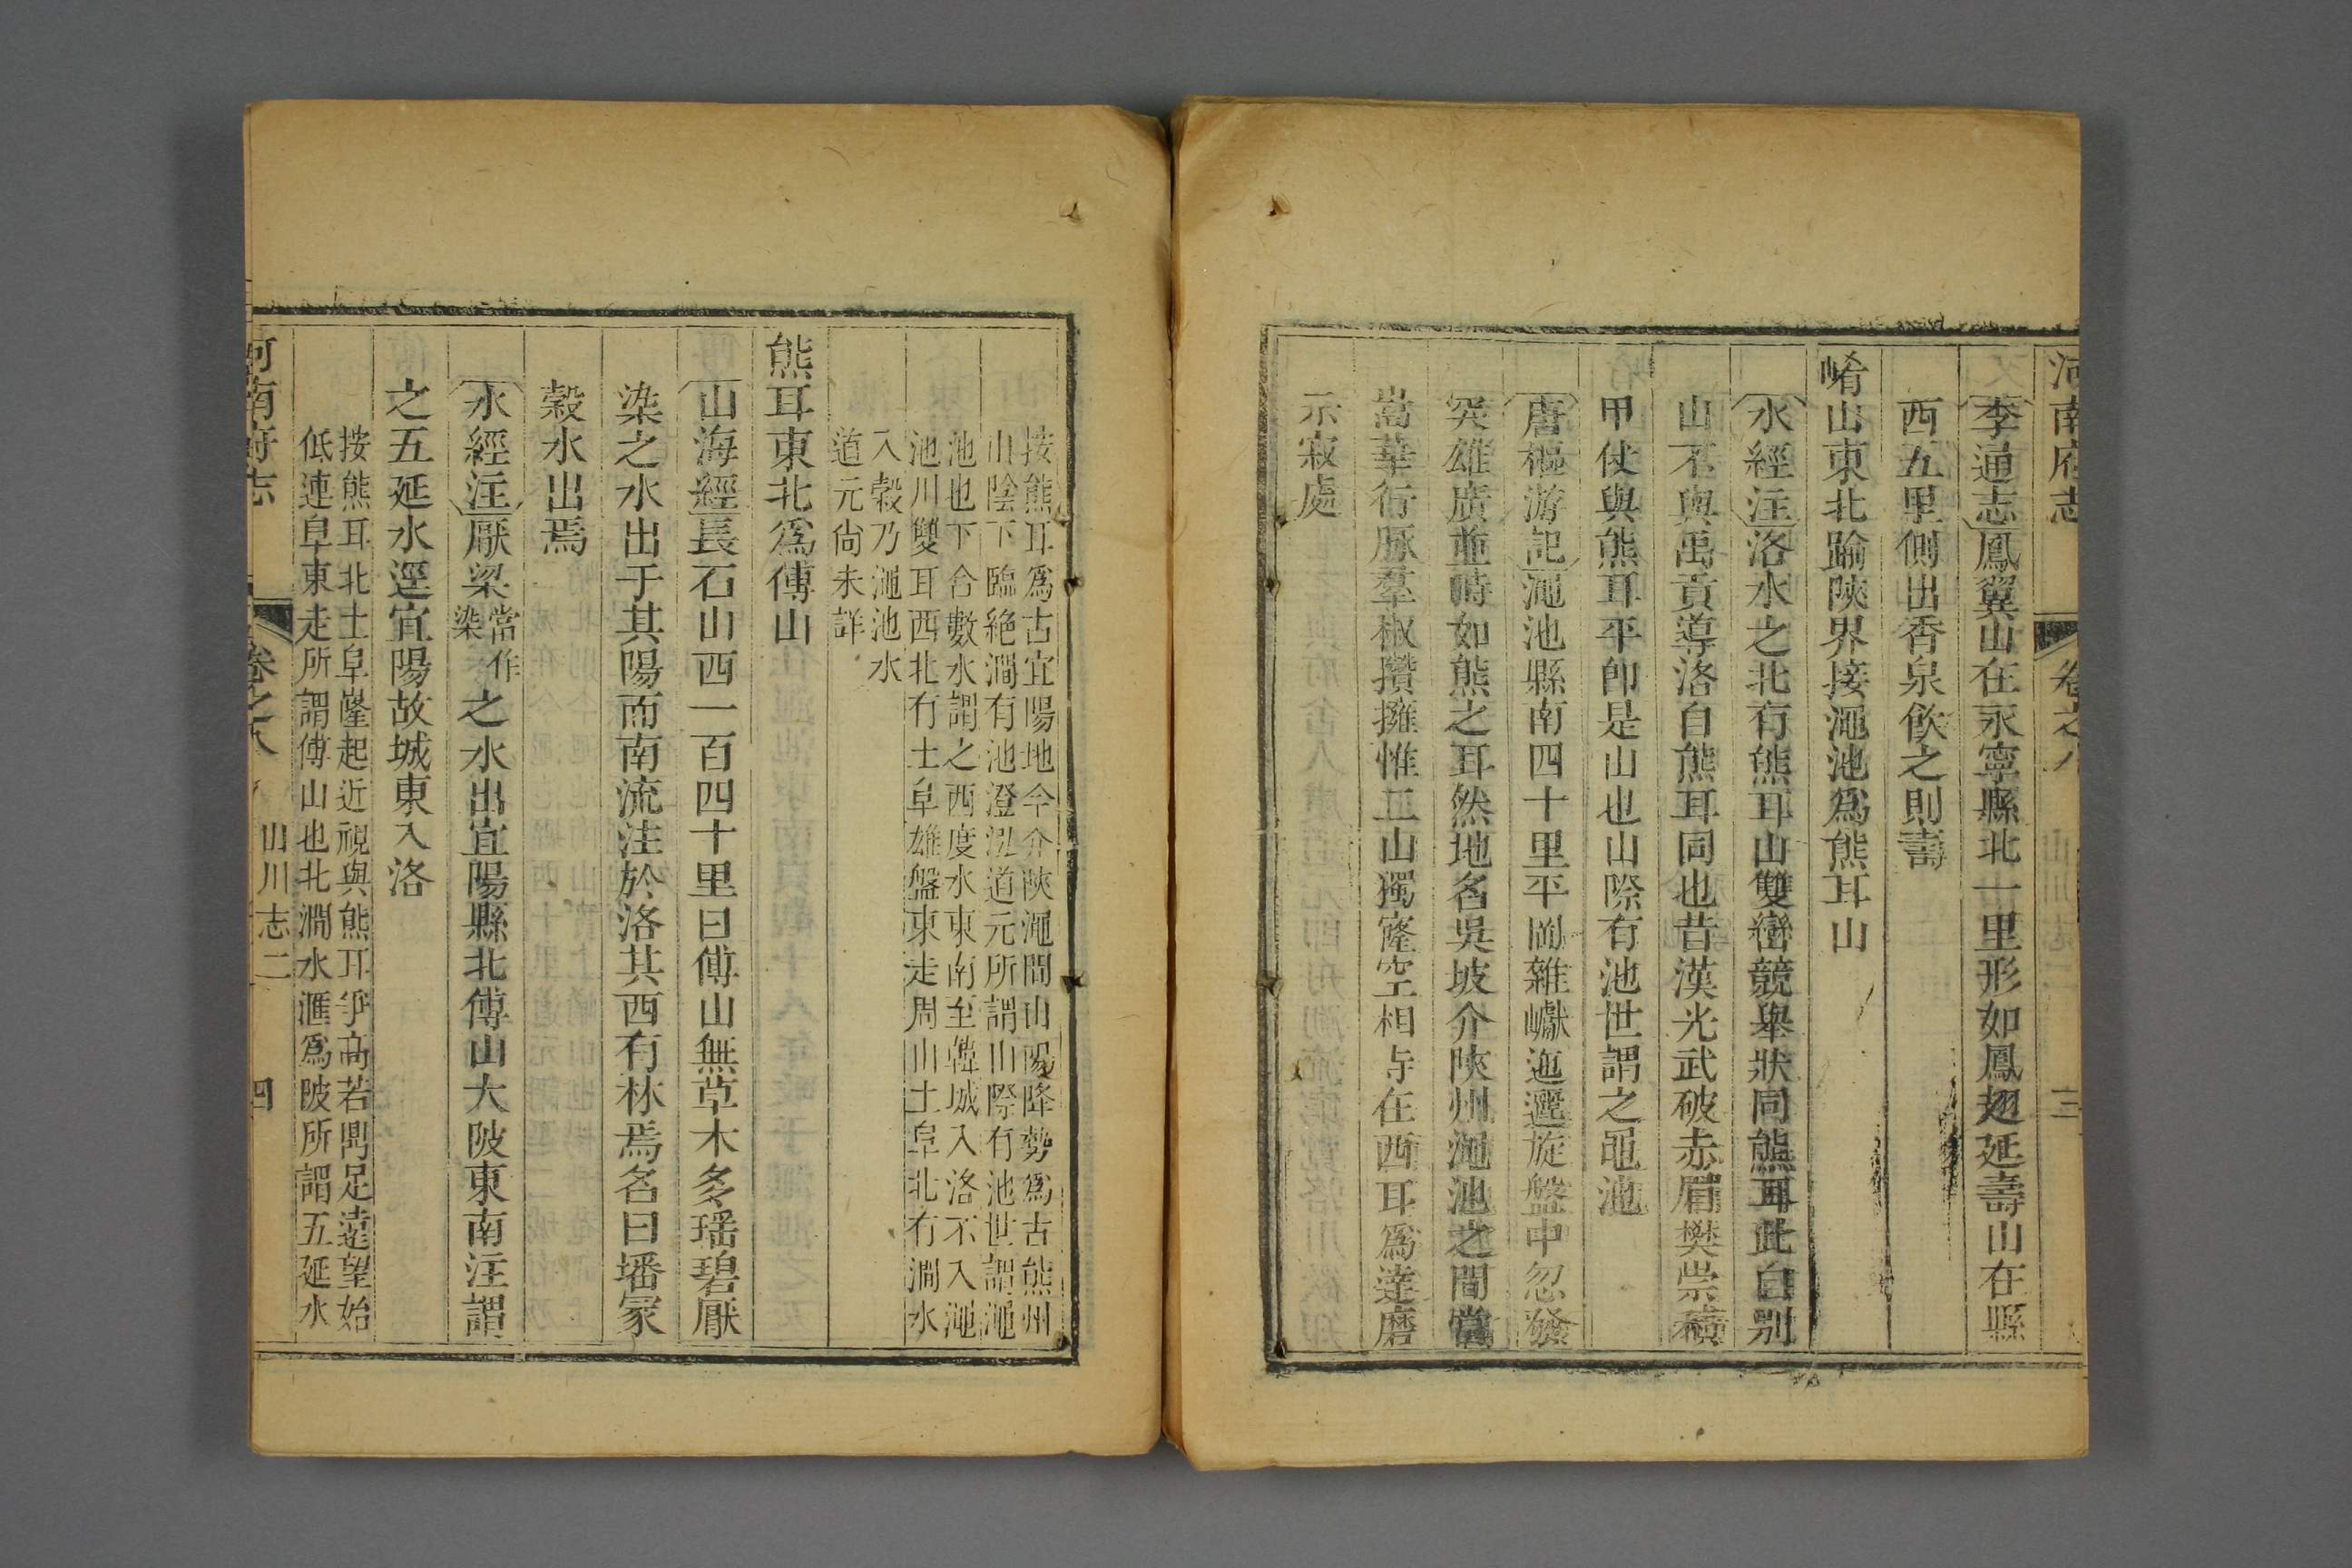 河南府志 卷之八 山川志 三
李通志鳳翼山在永寧縣北一里形如鳳翅延壽山在縣
西五里側出香泉飲之則壽
崤山東北踰陝界接澠池爲熊耳山
水經注洛水之北有熊耳山雙巒競舉狀同熊耳此自别
山不與禹貢導洛自熊耳同也昔漢光武破赤眉樊崇積
甲仗與熊耳平卽是山也山際有池世謂之黽池
唐樞游記澠池縣南四十里平岡雜巘迤邐旋盤中忽發
笑雄廣並時如熊之耳然地名吳坡介陝州澠池之間當
嵩華行脉羣椒攢擁惟二山獨窿空相峙在西耳爲達磨
示寂處
按熊耳爲古宜陽地今介陝澠間山陽降勢爲古熊州
山陰下臨絶澗有池澄泓道元所謂山際有池世謂澠
池也下合數水謂之西度水東南至韓城入洛不入澠
池川雙耳西北有土阜雄盤東走周山土阜北有澗水
入穀乃澠池水
道元尚未詳
熊耳東北爲傅山
山海經長石山西一百四十里曰傅山無草木多瑶碧厭
染之水出于其陽而南流注於洛其西有林焉名曰墦冡
穀水出焉
水經注厭梁當作染之水出宜陽縣北傅山大陂東南注謂
之五延水逕宜陽故城東入洛
按熊耳北土阜隆起近視與熊耳爭高若鼎足遠望始
低連阜東走所謂傅山也北澗水滙爲陂所謂五延水
河南府志 卷之八 山川志二 四